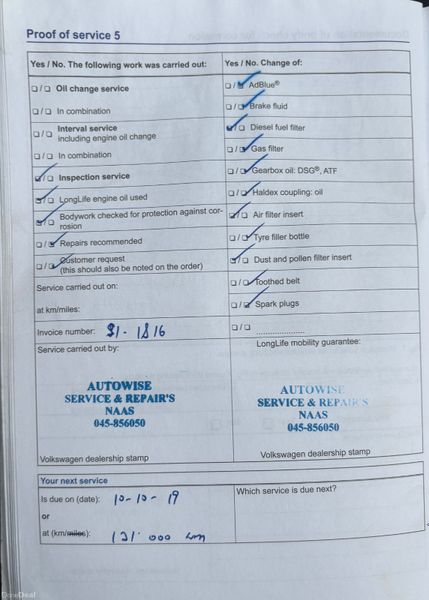 Proof of service 5
Yes / No. The following work was carried out:
Oil change service
In combination
Interval service
including engine oil change
In combination
Inspection service
LongLife engine oil used
Bodywork checked for protection against cor-
rosion
Repairs recommended
Customer request
(this should also be noted on the order)
Service carried out on:
at km/miles:
Invoice number: 51- 1816
Service carried out by:
AUTOWISE
SERVICE & REPAIR'S
NAAS
045-856050
Volkswagen dealership stamp
Yes / No. Change of:
AdBlue®
Brake fluid
Diesel fuel filter
Gas filter
Gearbox oil: DSG®, ATF
Haldex coupling: oil
Air filter insert
Tyre filler bottle
Dust and pollen filter insert
Toothed belt
Spark plugs
LongLife mobility guarantee:
AUTOWISE
SERVICE & REPAIR'S
NAAS
045-856050
Volkswagen dealership stamp
Your next service
Is due on (date): 10-10-19
or
at (km/miles): 121 000 km
Which service is due next?
DoneDeal